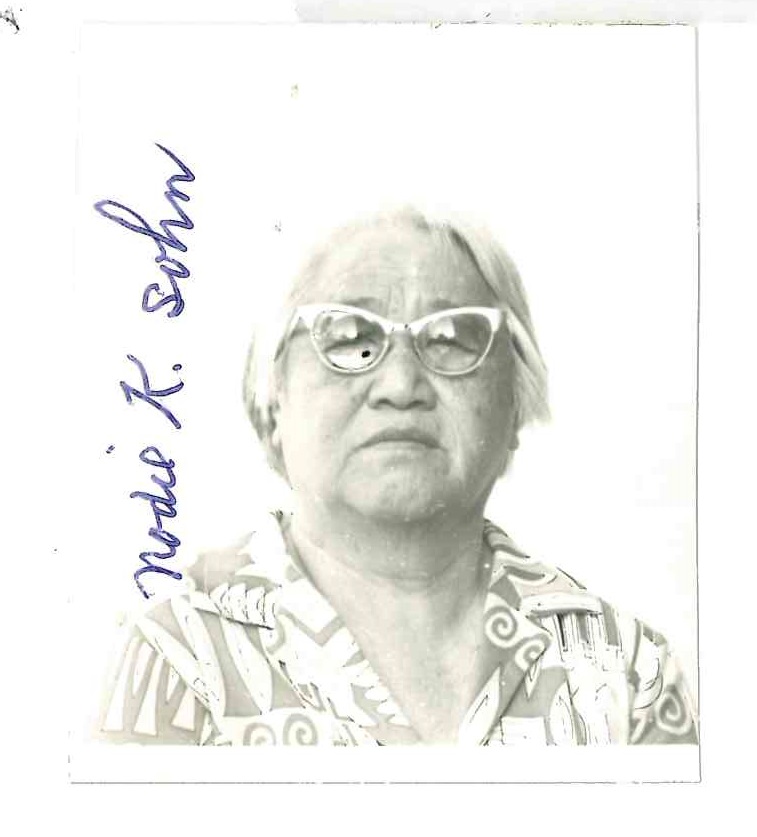 Nodie K. Sohn